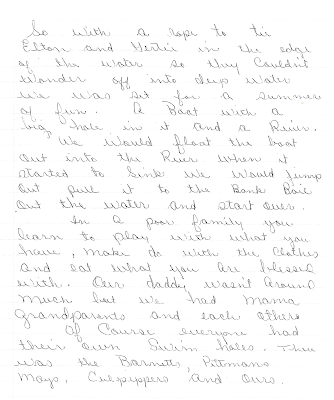 So with a rope to tie
Elton and Gertie in the edge
of the water so they Couldn't
Wonder off into deep water
we was set for a summer
of fun. A Boat with a
big hole in it and a River.
We would float the boat
out into the River when it
started to Sink we would jump
out pull it to the Bank Bail
out the water and start over.
In a poor family you
learn to play with what you
have, make do with the Clothes
and eat what you are blessed
with. Our daddy wasn't around
much but we had Mama
Grandparents and each others
Of Course everyone had
their own Swim holes. There
was the Barnetts, Pittmans
Mayo, Culpeppers and Ours.